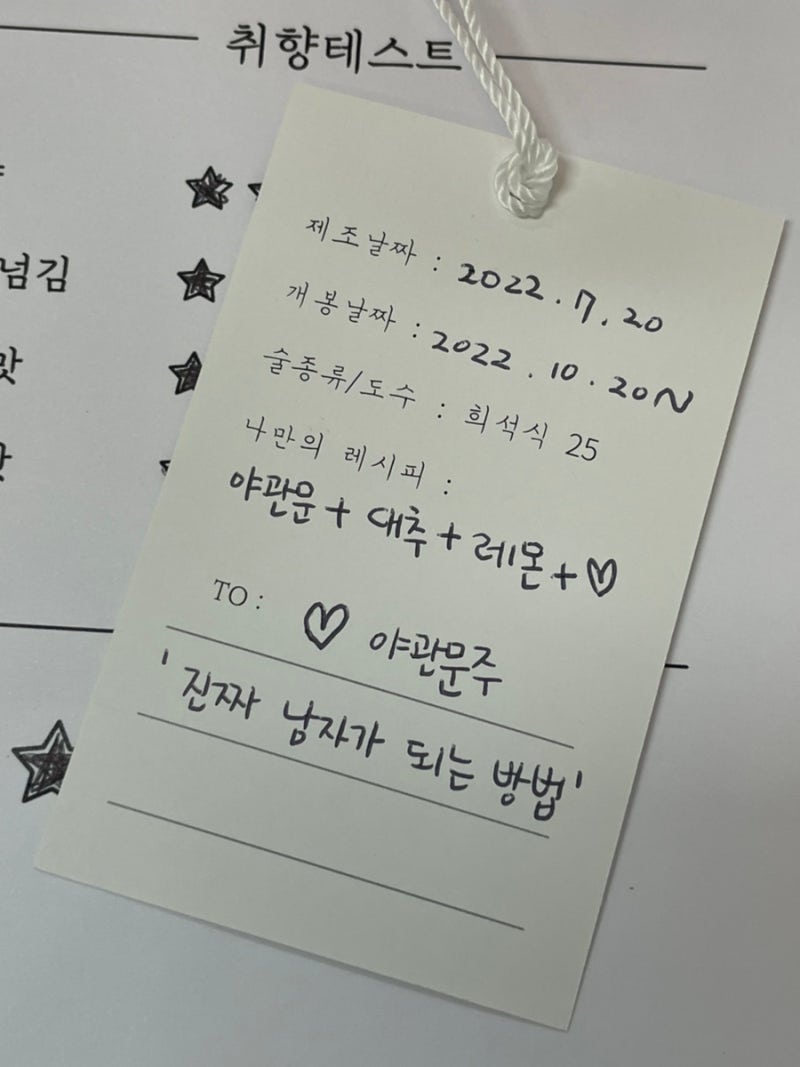 취향테스트
넘김
맛
제조날짜 : 2022.7.20
개봉날짜 : 2022.10.20~
술종류/도수 : 희석식 25
나만의 레시피 :
야관문 + 대추 + 레몬 + ♡
TO : ♡ 야관문주
'진짜 남자가 되는 방법'